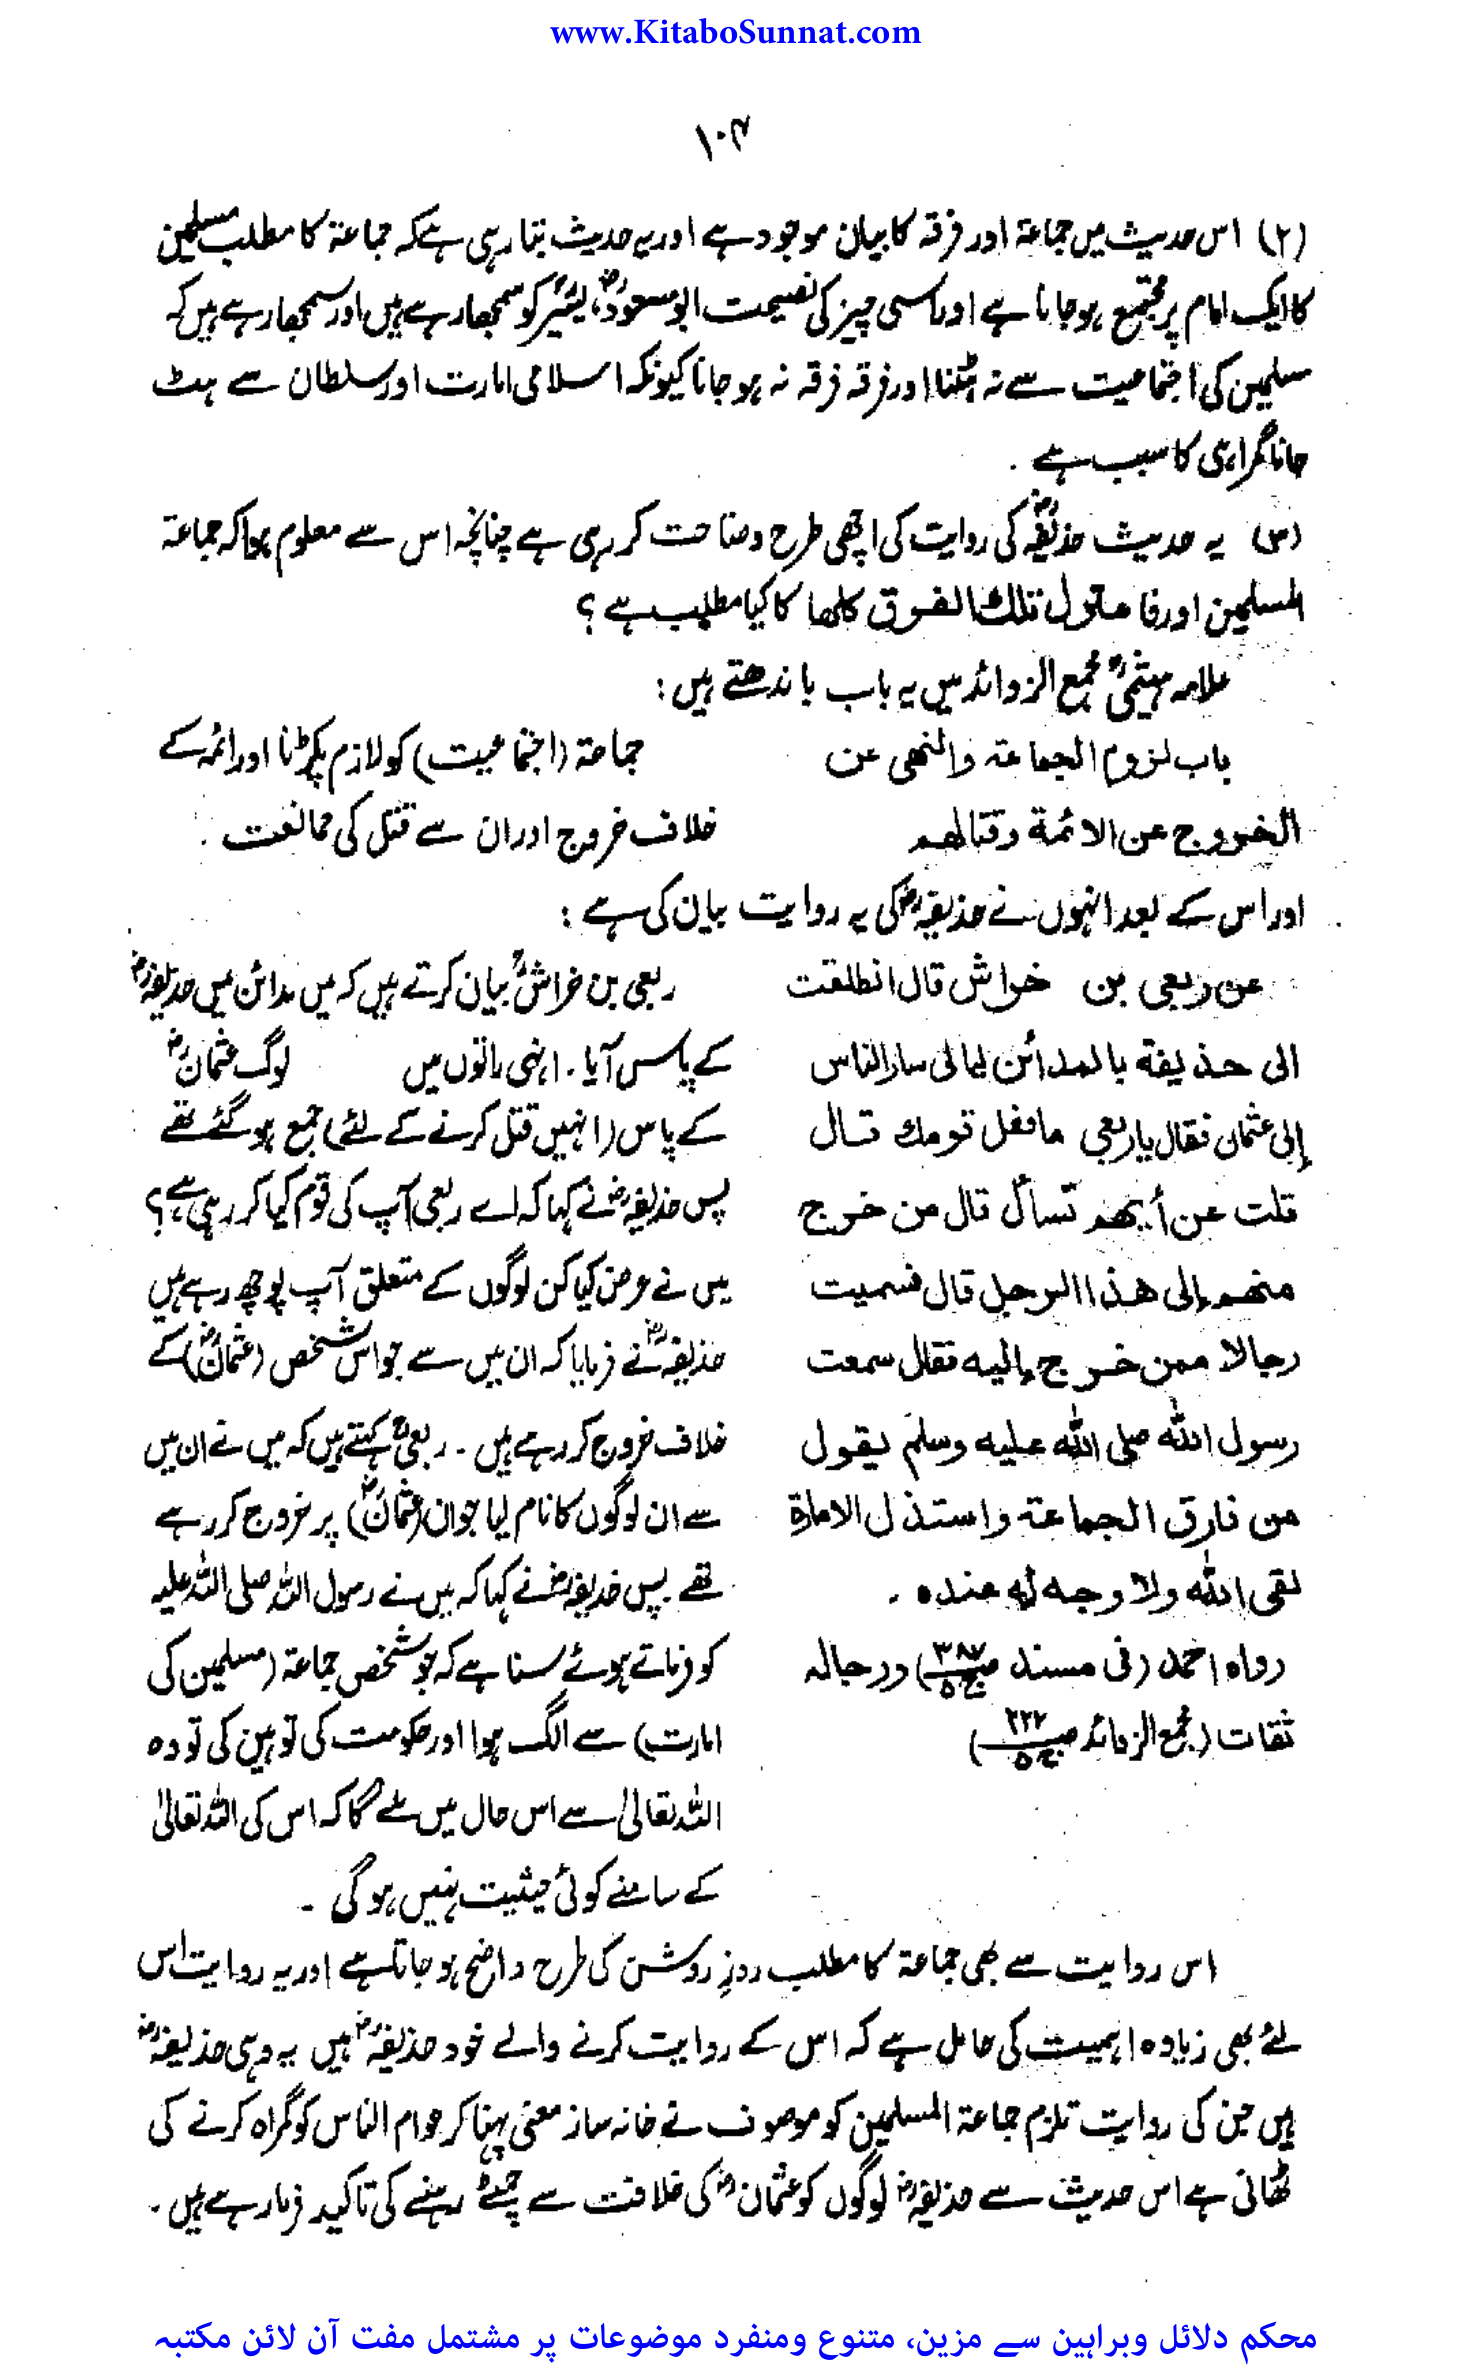 www.KitaboSunnat.com
۱۰۴
(۲) اس حدیث میں جماعۃ اور فرقہ کا بیان موجود ہے اور یہ حدیث بتا رہی ہے کہ جماعۃ کا مطلب مسلمین
کا ایک امام پر مجتمع ہو جانا ہے اور اسی چیز کی نصیحت ابو مسعودؓ، یسیرؒ کو سمجھا رہے ہیں اور سمجھا رہے ہیں کہ
مسلمین کی اجتماعیت سے نہ ہٹنا اور فرقہ فرقہ نہ ہو جانا کیونکہ اسلامی امارت اور سلطان سے ہٹ
جانا گمراہی کا سبب ہے ۔
(س) یہ حدیث حذیفہؓ کی روایت کی اچھی طرح وضاحت کر رہی ہے چنانچہ اس سے معلوم ہوا کہ جماعۃ
المسلمین اور فاعتزل تلک الفرق کلھا کا کیا مطلب ہے ؟
علامہ ہیثمیؒ مجمع الزوائد میں یہ باب باندھتے ہیں :
باب لزوم الجماعۃ والنھی عن
الخروج عن الائمۃ وقتالھم
جماعۃ (اجتماعیت) کو لازم پکڑنا اور ائمہ کے
خلاف خروج اور ان سے قتل کی ممانعت ۔
اور اس کے بعد انہوں نے حذیفہؓ کی یہ روایت بیان کی ہے :
عن ربعی بن خراش قال انطلقت
الی حذیفۃ بالمدائن لیالی سار الناس
إلی عثمان فقال یا ربعی ما فعل قومك قال
قلت عن أیھم تسأل قال من خرج
منھم إلی ھذا الرجل قال فسمیت
رجالا ممن خرج إلیه فقال سمعت
رسول الله صلی الله علیه وسلم یقول
من فارق الجماعۃ واستذل الامارۃ
لقی الله ولا وجه له عندہ ۔
رواہ احمد (فی مسند ص۳۸۷ ج۵) ورجاله
ثقات (مجمع الزوائد ص۲۲۲ ج۵)
ربعی بن خراشؒ بیان کرتے ہیں کہ میں مدائن میں حذیفہؓ
کے پاس آیا ۔ انہی راتوں میں لوگ عثمانؓ
کے پاس (انہیں قتل کرنے کے لئے) جمع ہو گئے تھے
پس حذیفہؓ نے کہا کہ اے ربعی آپ کی قوم کیا کر رہی ہے ؟
میں نے عرض کیا کن لوگوں کے متعلق آپ پوچھ رہے ہیں
حذیفہؓ نے فرمایا کہ ان میں سے جو اس شخص (عثمانؓ) کے
خلاف خروج کر رہے ہیں ۔ ربعیؒ کہتے ہیں کہ میں نے ان میں
سے ان لوگوں کا نام لیا جو ان (عثمانؓ) پر خروج کر رہے
تھے پس حذیفہؓ نے کہا کہ میں نے رسول اللہ صلی اللہ علیہ
کو فرماتے ہوئے سنا ہے کہ جو شخص جماعۃ (مسلمین کی
امارت) سے الگ ہوا اور حکومت کی توہین کی تو وہ
اللہ تعالیٰ سے اس حال میں ملے گا کہ اس کی اللہ تعالیٰ
کے سامنے کوئی حیثیت نہیں ہو گی ۔
اس روایت سے بھی جماعۃ کا مطلب روزِ روشن کی طرح واضح ہو جاتا ہے اور یہ روایت اس
لئے بھی زیادہ اہمیت کی حامل ہے کہ اس کے روایت کرنے والے خود حذیفہؓ ہیں یہ وہی حذیفہؓ
ہیں جن کی روایت تلزم جماعۃ المسلمین کو موصوف نے خانہ ساز معنی پہنا کر عوام الناس کو گمراہ کرنے کی
ٹھانی ہے اس حدیث سے حذیفہؓ لوگوں کو عثمانؓ کی خلافت سے چمٹے رہنے کی تاکید فرما رہے ہیں ۔
محکم دلائل وبراہین سے مزین، متنوع ومنفرد موضوعات پر مشتمل مفت آن لائن مکتبہ